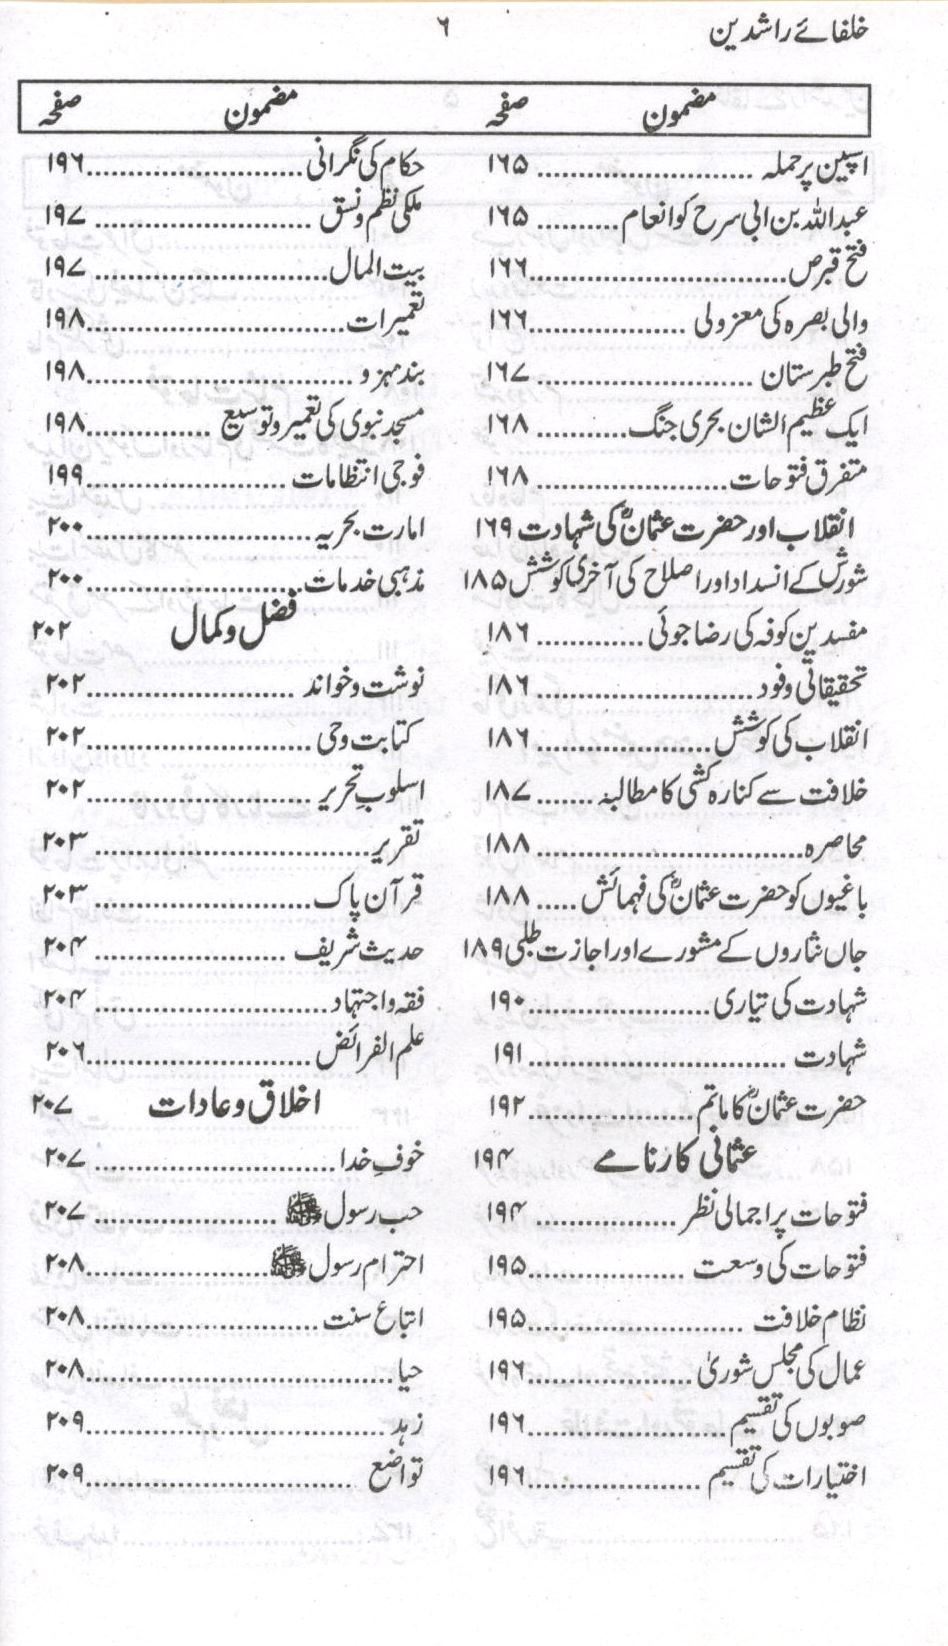 خلفائے راشدین ۶
مضمون صفحہ
اسپین پر حملہ ........................ ۱۶۵
عبداللہ بن ابی سرح کو انعام .......... ۱۶۵
فتح قبرص ........................ ۱۶۶
والی بصرہ کی معزولی .................. ۱۶۶
فتح طبرستان ........................ ۱۶۷
ایک عظیم الشان بحری جنگ ........... ۱۶۸
متفرق فتوحات ........................ ۱۶۸
انقلاب اور حضرت عثمانؓ کی شہادت ۱۶۹
شورش کے انسداد اور اصلاح کی آخری کوشش ۱۸۵
مفسدین کوفہ کی رضا جوئی ............ ۱۸۶
تحقیقاتی وفود ........................ ۱۸۶
انقلاب کی کوشش .................... ۱۸۶
خلافت سے کنارہ کشی کا مطالبہ ........ ۱۸۷
محاصرہ .............................. ۱۸۸
باغیوں کو حضرت عثمانؓ کی فہمائش ..... ۱۸۸
جاں نثاروں کے مشورے اور اجازت طلبی ۱۸۹
شہادت کی تیاری .................... ۱۹۰
شہادت ............................. ۱۹۱
حضرت عثمانؓ کا ماتم .................. ۱۹۲
عثمانی کارنامے ۱۹۴
فتوحات پر اجمالی نظر ................ ۱۹۴
فتوحات کی وسعت .................. ۱۹۵
نظام خلافت ........................ ۱۹۵
عمال کی مجلس شوریٰ .................. ۱۹۶
صوبوں کی تقسیم ...................... ۱۹۶
اختیارات کی تقسیم .................... ۱۹۶
مضمون صفحہ
حکام کی نگرانی ........................ ۱۹۶
ملکی نظم و نسق ........................ ۱۹۷
بیت المال .......................... ۱۹۷
تعمیرات ............................ ۱۹۸
بند مہزو ............................. ۱۹۸
مسجد نبوی کی تعمیر و توسیع .............. ۱۹۸
فوجی انتظامات ...................... ۱۹۹
امارت بحریہ ........................ ۲۰۰
مذہبی خدمات ........................ ۲۰۰
فضل و کمال ۲۰۲
نوشت و خواند ........................ ۲۰۲
کتابت وحی ........................ ۲۰۲
اسلوبِ تحریر ........................ ۲۰۲
تقریر .............................. ۲۰۳
قرآن پاک .......................... ۲۰۳
حدیث شریف ...................... ۲۰۴
فقہ و اجتہاد ........................ ۲۰۴
علم الفرائض ........................ ۲۰۶
اخلاق و عادات ۲۰۷
خوفِ خدا .......................... ۲۰۷
حب رسول ﷺ .................... ۲۰۷
احترام رسول ﷺ .................. ۲۰۸
اتباع سنت ........................ ۲۰۸
حیا ................................ ۲۰۸
زہد ................................ ۲۰۹
تواضع .............................. ۲۰۹